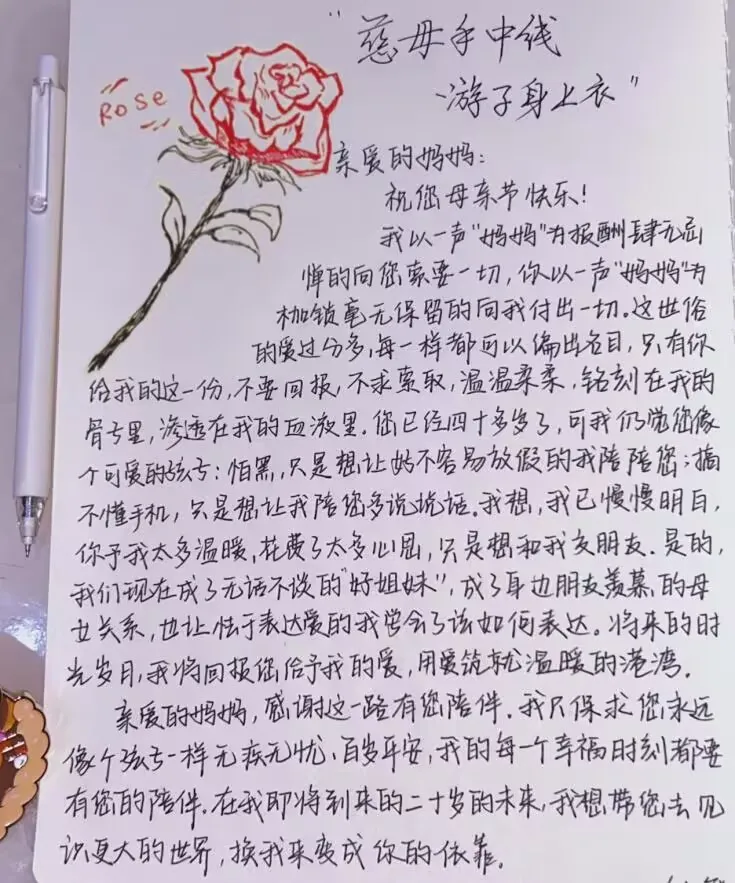 "慈母手中线
游子身上衣"
Rose
亲爱的妈妈:
祝您母亲节快乐!
我以一声"妈妈"为报酬肆无忌
惮的向您索要一切,你以一声"妈妈"为
枷锁毫无保留的向我付出一切.这世俗
的爱过分多,每一样都可以编出名目,只有你
给我的这一份,不要回报,不求索取,温温柔柔,铭刻在我的
骨子里,渗透在我的血液里.您已经四十多岁了,可我仍觉您像
个可爱的孩子:怕黑,只是想让好不容易放假的我陪陪您;搞
不懂手机,只是想让我陪您多说说话。我想,我已慢慢明白,
你予我太多温暖,花费了太多心思,只是想和我交朋友.是的,
我们现在成了无话不谈的"好姐妹",成了身边朋友羡慕的母
女关系,也让怯于表达爱的我学会了该如何表达。将来的时
光岁月,我将回报您给予我的爱,用爱筑就温暖的港湾.
亲爱的妈妈,感谢这一路有您陪伴.我只保求您永远
像个孩子一样无疾无忧、百岁平安,我的每一个幸福时刻都要
有您的陪伴.在我即将到来的二十岁的未来,我想带您去见
识更大的世界,换我来变成你的依靠.